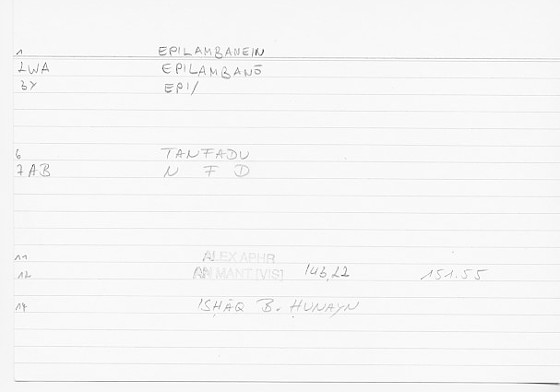 1 EPILAMBANEIN
2WA EPILAMBANŌ
3Y EPI/
6 TANFADU
7AB N F D
11 ALEX APHR
12 AN MANT [VIS] 146,22 151.55
14 ISḤĀQ B. ḤUNAYN